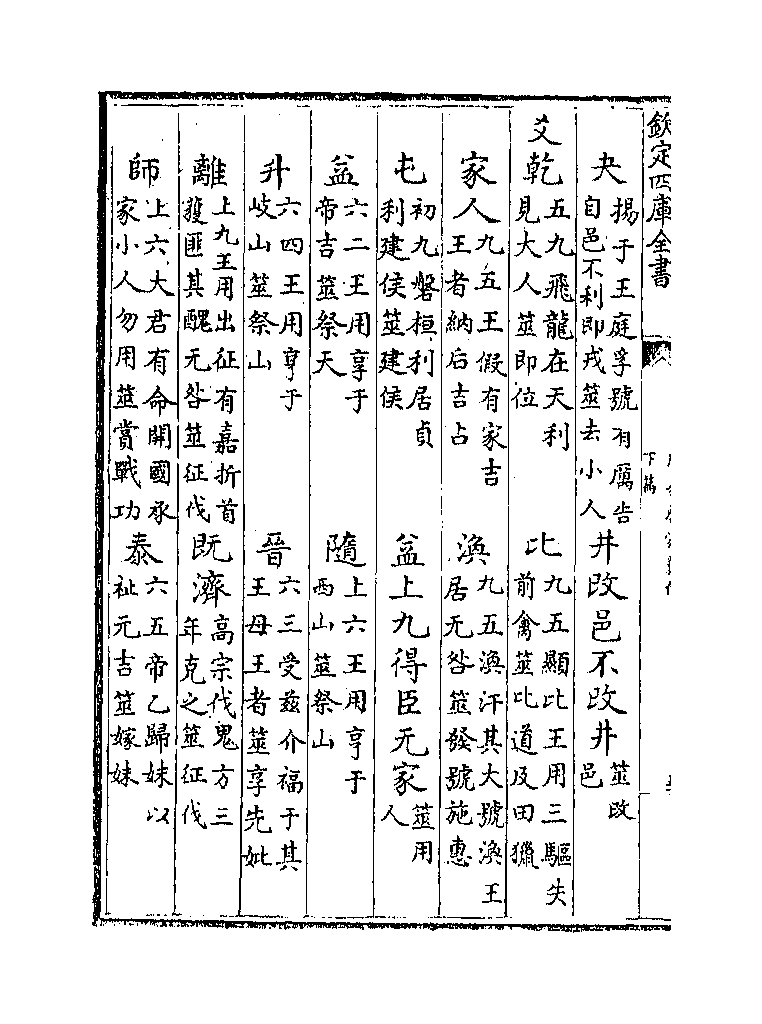 欽定四庫全書
下篇
夬揚于王庭孚號有厲告自邑不利即戎筮去小人 井改邑不改井筮改邑
爻乾五九飛龍在天利見大人筮即位 比九五顯比王用三驅失前禽筮比道及田獵
家人九五王假有家吉王者納后吉占 渙九五渙汗其大號渙王居无咎筮發號施惠
屯初九磐桓利居貞利建侯筮建侯 益上九得臣无家筮用人
益六二王用享于帝吉筮祭天 隨上六王用亨于西山筮祭山
升六四王用亨于岐山筮祭山 晉六三受兹介福于其王母王者筮享先妣
離上九王用出征有嘉折首獲匪其醜无咎筮征伐 既濟高宗伐鬼方三年克之筮征伐
師上六大君有命開國承家小人勿用筮賞戰功 泰六五帝乙歸妹以祉元吉筮嫁妹